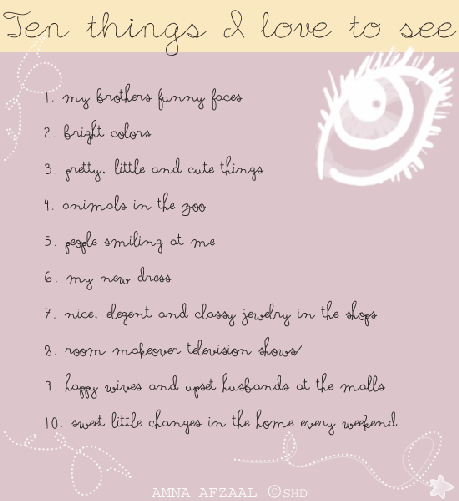 Ten things I love to see
1. my brothers funny faces
2. bright colors
3. pretty. little and cute things
4. animals in the zoo
5. people smiling at me
6. my new dress
7. nice. elegent and classy jewelry in the shops
8. room makeover television shows
9. happy wives and upset husbands at the malls
10. sweet little changes in the home every weekend.
AMNA AFZAAL ©SHD